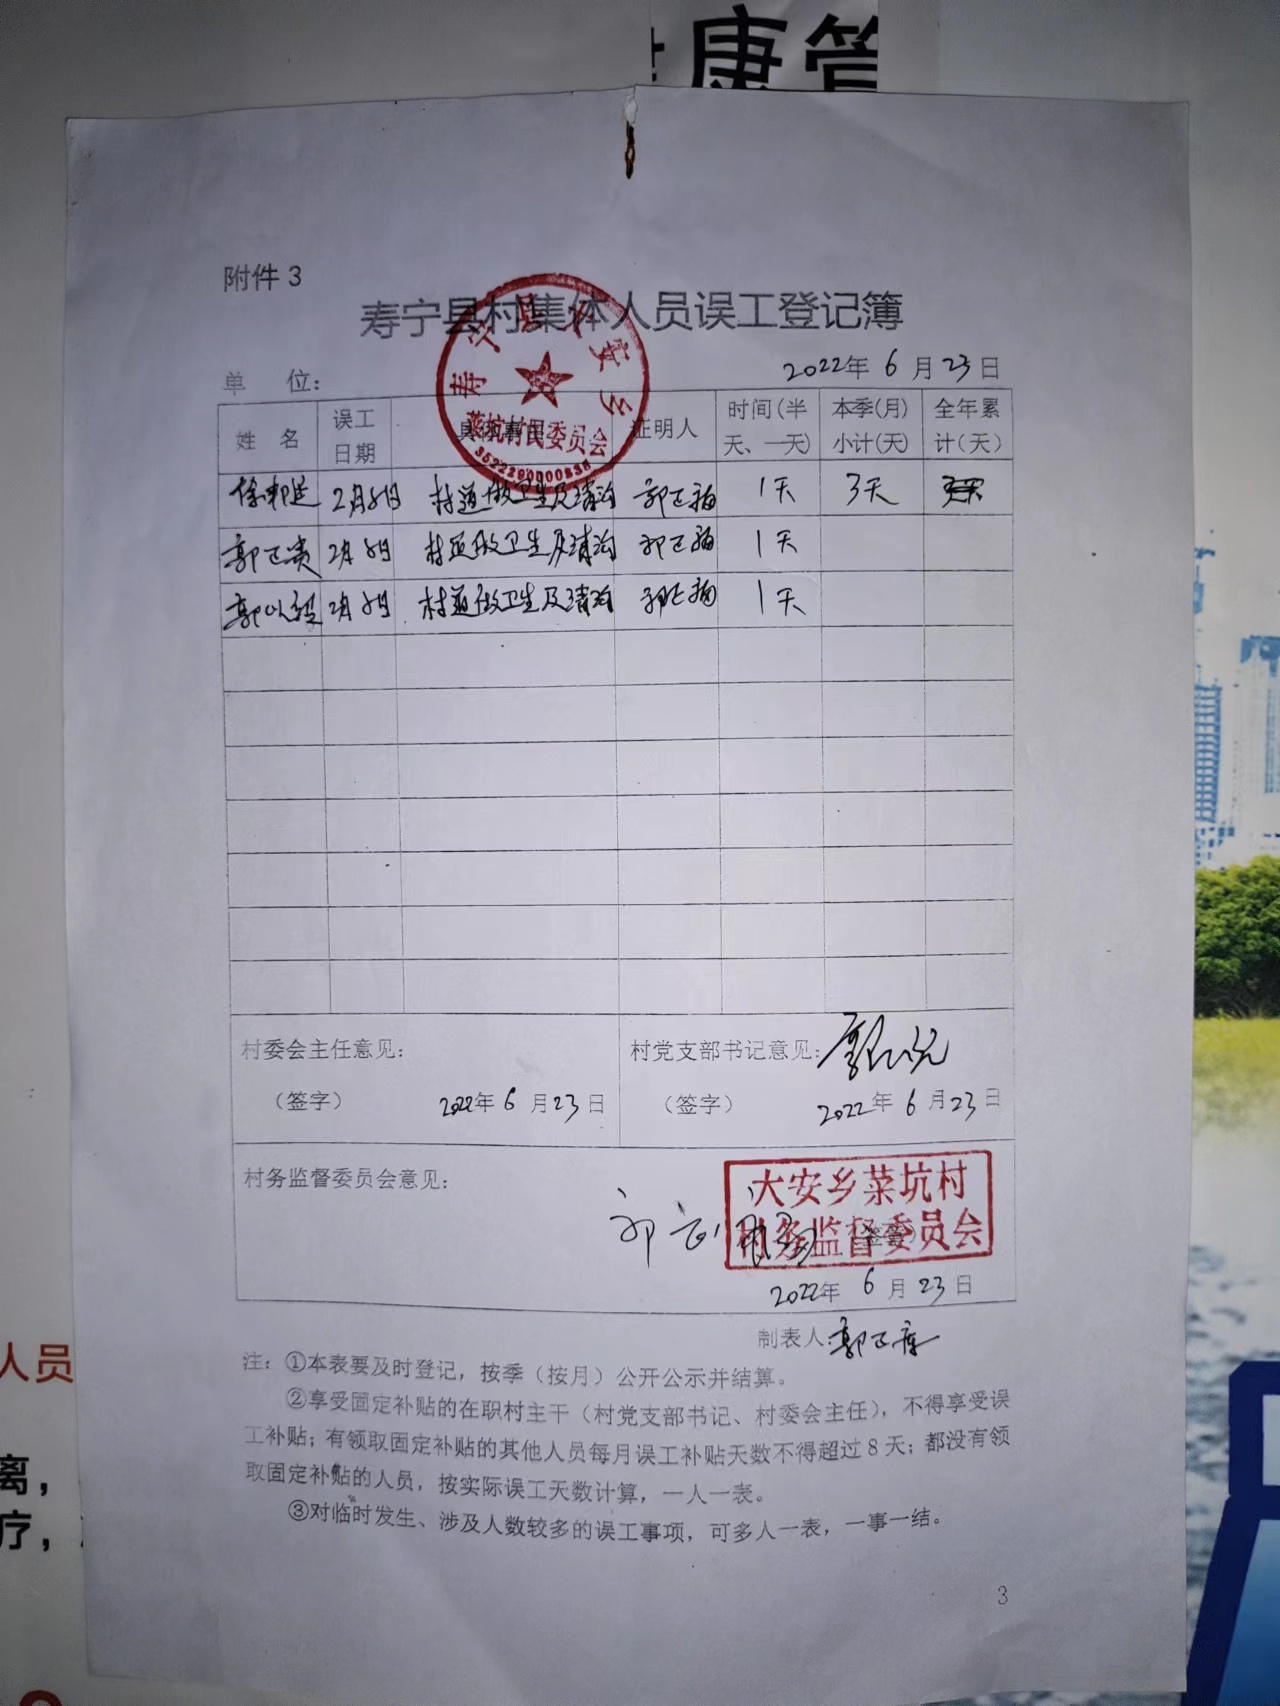 康管
附件3
寿宁县村集体人员误工登记簿
单 位：
2022年6月23日
寿宁县大安乡
菜坑村民委员会
姓 名 误工日期 具体事由 证明人 时间(半天、一天) 本季(月)小计(天) 全年累计(天)
2月8日 村道做卫生及清沟 1天 3天
郭正贵 2月8日 村道做卫生及清沟 1天
2月8日 村道做卫生及清沟 1天
村委会主任意见：
村党支部书记意见：
（签字） 2022年6月23日
（签字） 2022年6月23日
村务监督委员会意见：
大安乡菜坑村
村务监督委员会
2022年6月23日
制表人：
注：①本表要及时登记，按季（按月）公开公示并结算。
②享受固定补贴的在职村主干（村党支部书记、村委会主任），不得享受误
工补贴；有领取固定补贴的其他人员每月误工补贴天数不得超过8天；都没有领
取固定补贴的人员，按实际误工天数计算，一人一表。
③对临时发生、涉及人数较多的误工事项，可多人一表，一事一结。
3
人员
离，
疗，